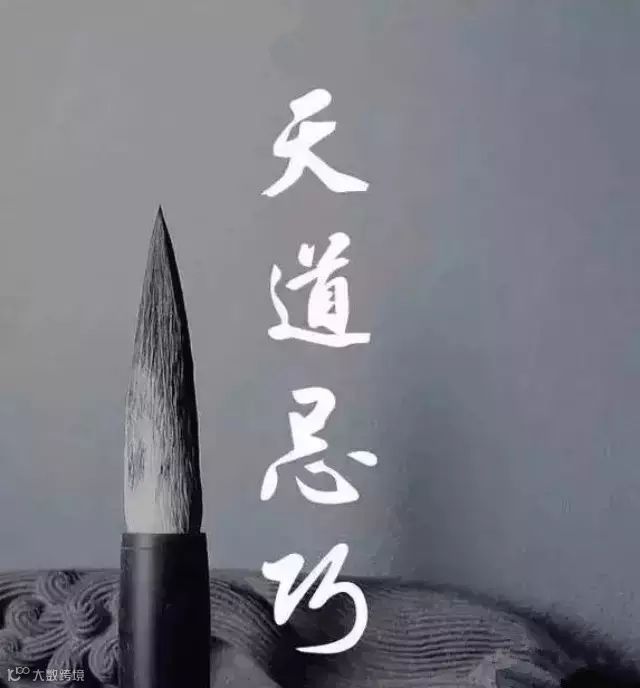 天道忌巧
10100 大数跨境